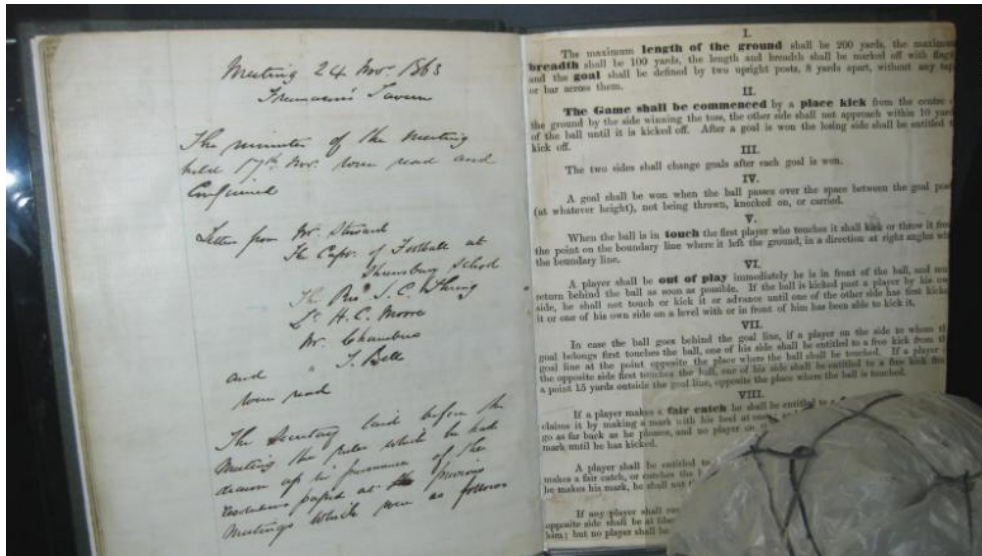 Meeting 24 Novr 1863
Freemason's Tavern
The minutes of the Meeting
held 17th Nov. were read and
Confirmed
Letters from Mr. Steward
The Captn. of Football at
Shrewsbury School
The Revd J. C. Thring
Lt. H. C. Moore
Mr. Chambers
and " J. Bell
were read
The Secretary laid before the
Meeting the rules which he had
drawn up in pursuance of the
resolutions passed at the previous
Meetings which were as follows
I.
The maximum length of the ground shall be 200 yards, the maximum
breadth shall be 100 yards, the length and breadth shall be marked off with flags
and the goal shall be defined by two upright posts, 8 yards apart, without any tape
or bar across them.
II.
The Game shall be commenced by a place kick from the centre
the ground by the side winning the toss, the other side shall not approach within 10 yards
of the ball until it is kicked off. After a goal is won the losing side shall be entitled
kick off.
III.
The two sides shall change goals after each goal is won.
IV.
A goal shall be won when the ball passes over the space between the goal posts
(at whatever height), not being thrown, knocked on, or carried.
V.
When the ball is in touch the first player who touches it shall kick or throw it from
the point on the boundary line where it left the ground, in a direction at right angles with
the boundary line.
VI.
A player shall be out of play immediately he is in front of the ball, and must
return behind the ball as soon as possible. If the ball is kicked past a player by his own
side, he shall not touch or kick it or advance until one of the other side has first kicked
it or one of his own side on a level with or in front of him has been able to kick it.
VII.
In case the ball goes behind the goal line, if a player on the side to whom the
goal belongs first touches the ball, one of his side shall be entitled to a free kick from the
goal line at the point opposite the place where the ball shall be touched. If a player of
the opposite side first touches the ball, one of his side shall be entitled to a free kick from
a point 15 yards outside the goal line, opposite the place where the ball is touched.
VIII.
If a player makes a fair catch he shall be entitled to a
claims it by making a mark with his heel at once; and
go as far back as he pleases, and no player on
mark until he has kicked.
A player shall be entitled to
makes a fair catch, or catches the
he makes his mark, he shall not
If any player shall run
opposite side shall be at liberty
him; but no player shall be